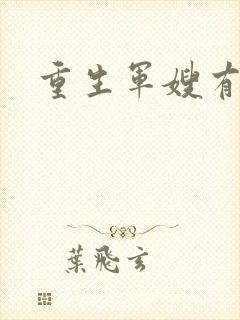 重生軍嫂有
葉飛玄